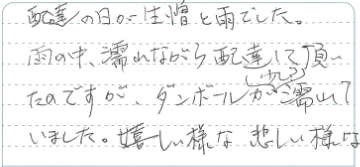 配達の日が生憎と雨でした。
雨の中、濡れながら配達して頂い
たのですが、ダンボールが少し濡れて
いました。嬉しい様な悲しい様な